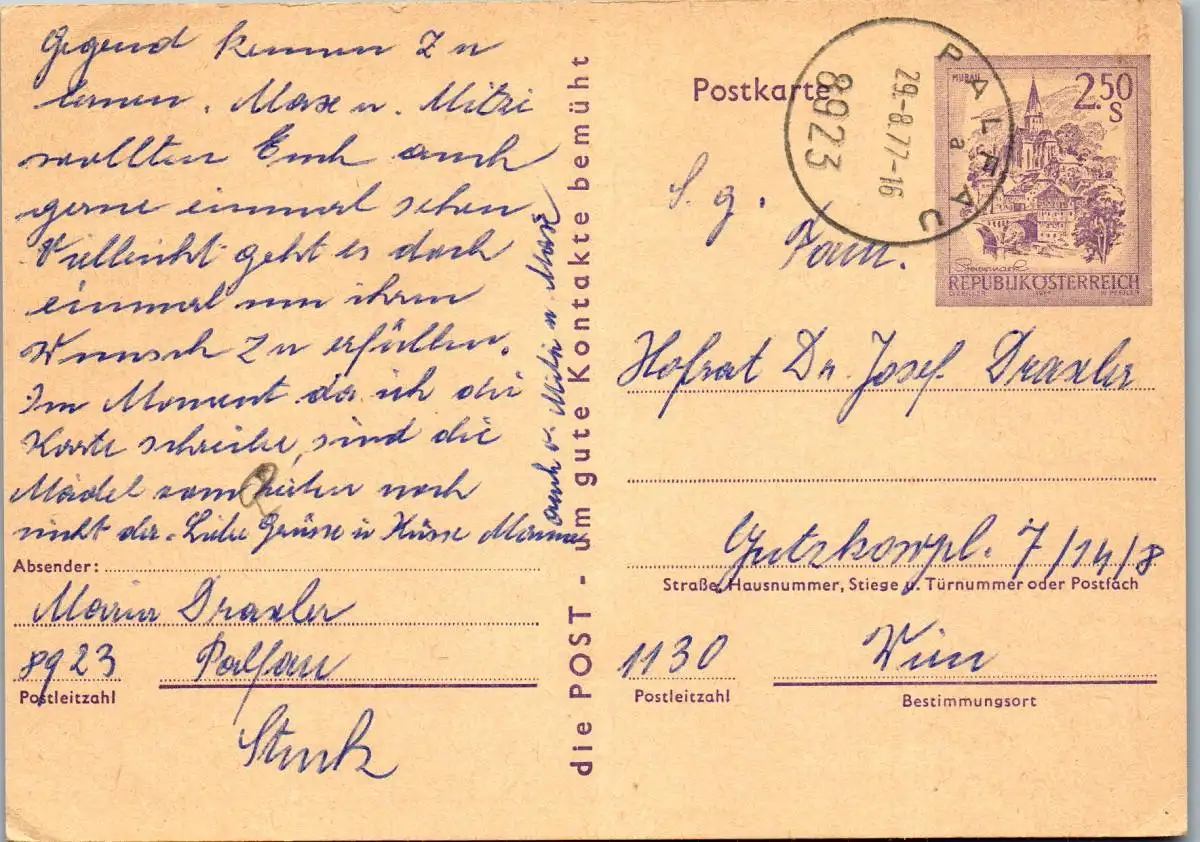 Gegend kennen zu
lernen. Maxe u. Mitzi
wollten Euch auch
gerne einmal sehen
Vielleicht geht es doch
einmal um ihren
Wunsch zu erfüllen.
Im Moment da ich die
Karte schreibe, sind die
Mädel vom noch
nicht da. Liebe Grüsse u Küsse Mama
auch v. Mitzi u Maxe
Absender:
Maria Draxler
8923 Palfau
Postleitzahl
Stmk
die POST - um gute Kontakte bemüht
Postkarte
PALFAU
a
29.-8.77-16
8923
MURAU
2.50
S
Steiermark
REPUBLIK ÖSTERREICH
S. g.
Fam.
Hofrat Dr. Josef Draxler
Gutzkowpl. 7/14/8
Straße, Hausnummer, Stiege u. Türnummer oder Postfach
1130 Wien
Postleitzahl
Bestimmungsort